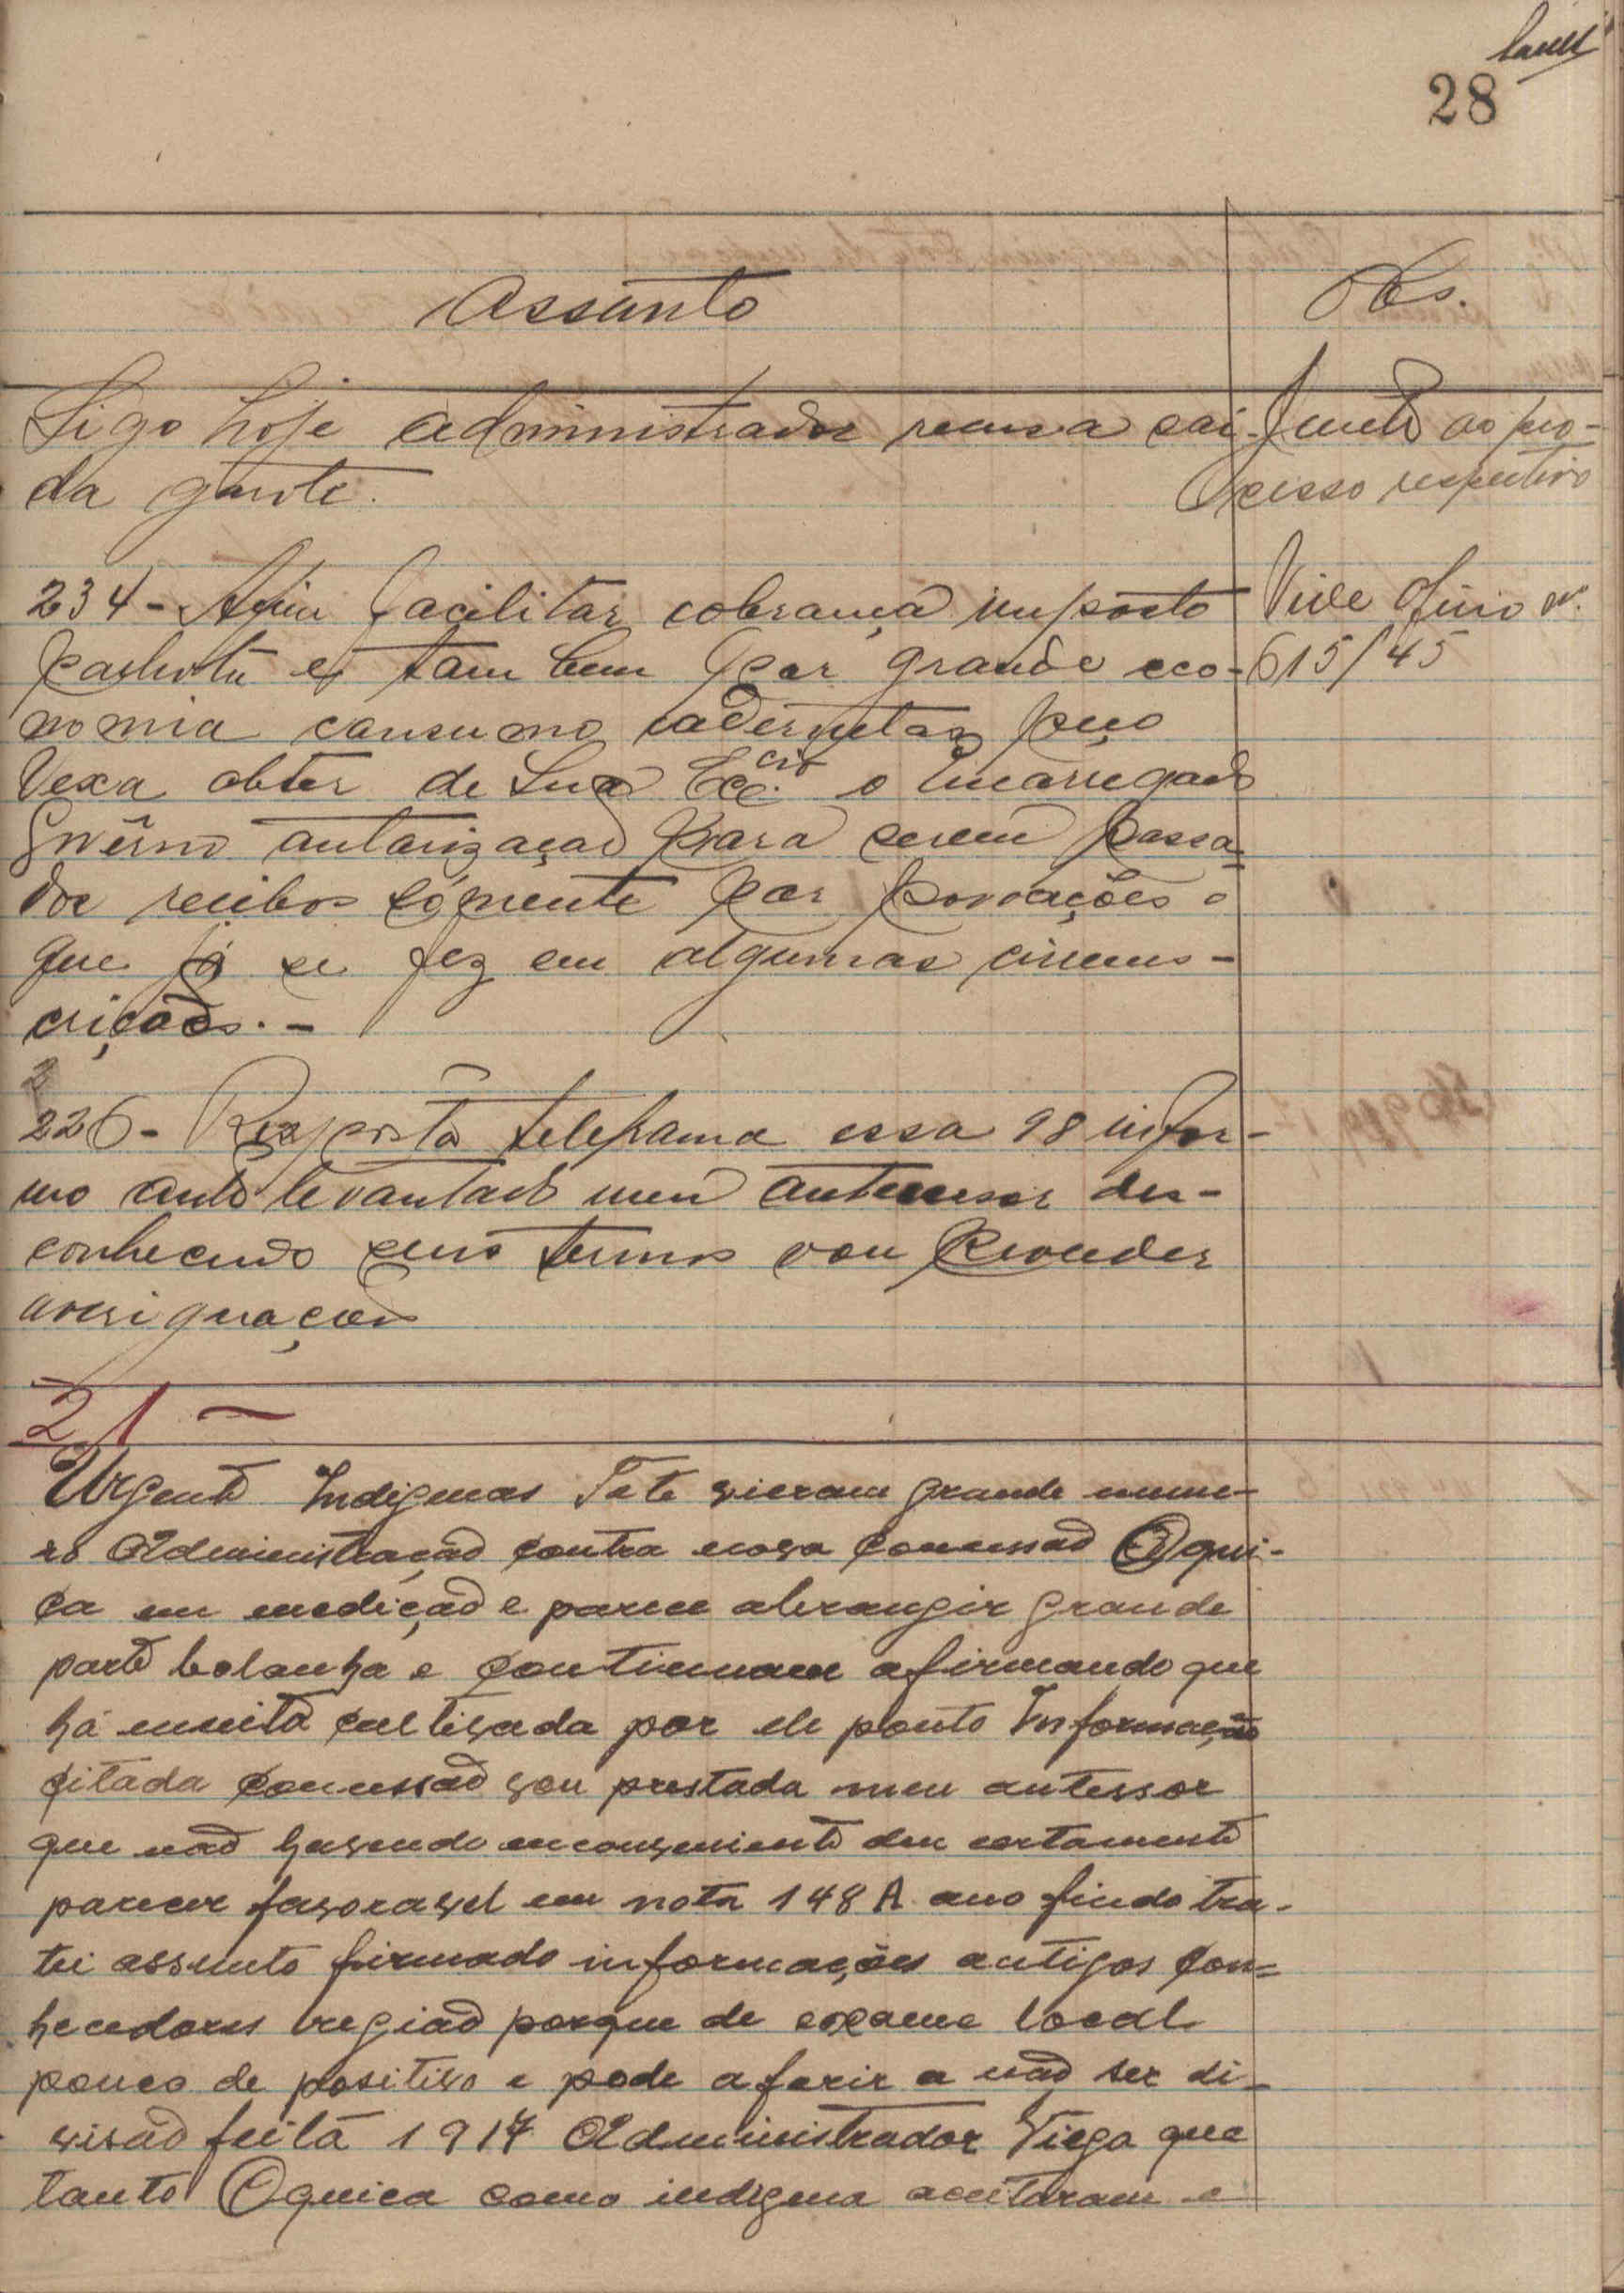 28
Assunto
Obs.
Sigo hoje administrador recusa sai-
da gente.
Junto ao pro-
cesso respectivo
234 - Afim facilitar cobrança imposto
palhota e tam bem por grande eco-
nomia consumo cadernetas peço
Vexa obter de Sua Exc.cia o Encarregado
Govêrno autorização para serem passa-
dos recibos sómente por povoações o
que já se fez em algumas circuns-
crições. -
Vide oficio nº.
615/45
2
226 - Resposta telegrama essa 98 infor-
mo auto levantado meu antecessor des-
conhecendo seus termos vou proceder
averiguações
21 -
Urgente Indigenas Tete vieram grande nume-
ro Administração contra nova concessão Oqui-
ca em medição e parece abrangir grande
parte bolanha e continuam afirmando que
há muito cultivada por ele ponto Informação
citada concessão sou prestada meu antessor
que não havendo inconveniente deu certamente
parecer favoravel em nota 148 A ano findo tra-
tei assunto firmado informações antigos con=
hecedores região porque de exame local
pouco de positivo e pode aferir a não ser di-
visão feita 1917 Administrador Viega que
tanto Oquica como indigena aceitaram e